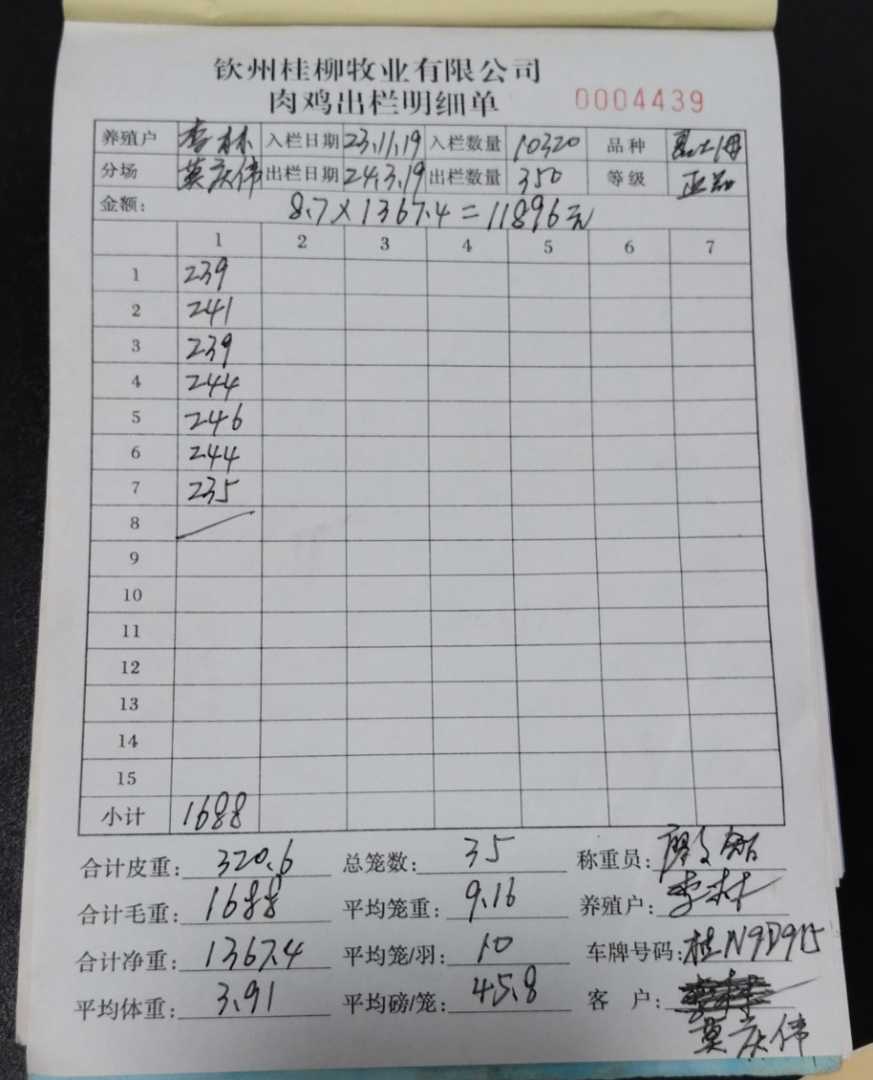 钦州桂柳牧业有限公司
肉鸡出栏明细单 0004439
养殖户 李林 入栏日期 23.11.19 入栏数量 10320 品种
分场 莫庆伟 出栏日期 24.3.19 出栏数量 350 等级 正品
金额: 8.7×1367.4=11896元
1 2 3 4 5 6 7
1 239
2 241
3 239
4 244
5 246
6 244
7 235
8
9
10
11
12
13
14
15
小计 1688
合计皮重: 320.6 总笼数: 35 称重员:
合计毛重: 1688 平均笼重: 9.16 养殖户: 李林
合计净重: 1367.4 平均笼/羽: 10 车牌号码: 桂N9D915
平均体重: 3.91 平均磅/笼: 45.8 客 户:
莫庆伟